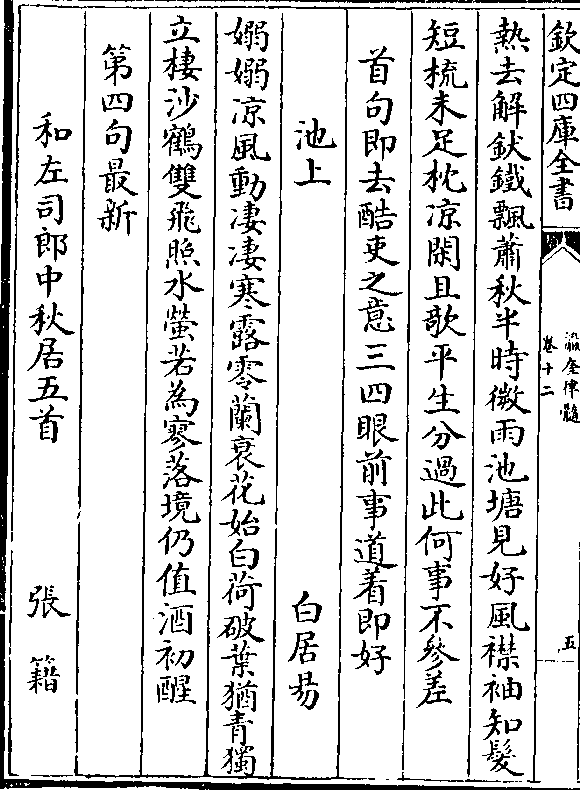 欽定四庫全書
瀛奎律髓
卷十二
五
熱去解鈇鐵飄蕭秋半時微雨池塘見好風襟袖知髮
短梳未足枕凉閑且歌平生分過此何事不參差
首句即去酷吏之意三四眼前事道着即好
池上 白居易
嫋嫋凉風動凄凄寒露零蘭衰花始白荷破葉猶青獨
立棲沙鶴雙飛照水螢若為寥落境仍值酒初醒
第四句最新
和左司郎中秋居五首 張籍